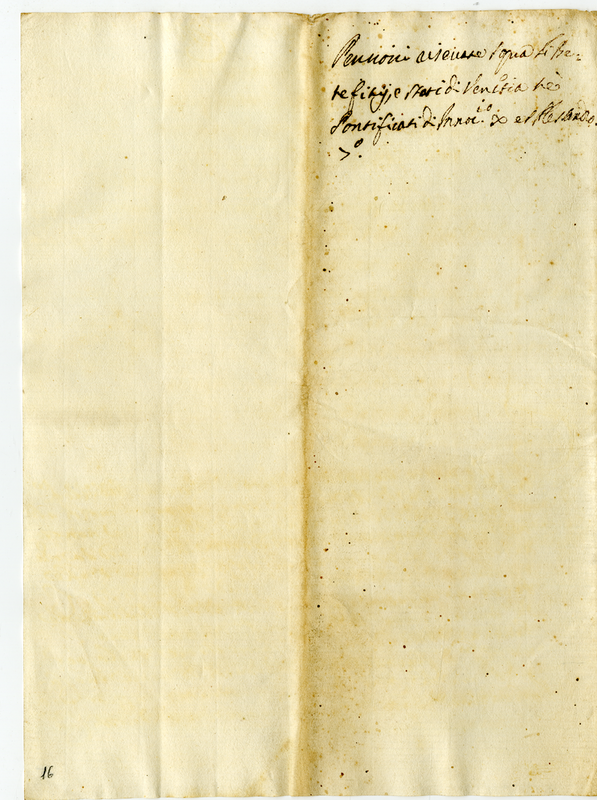 Pensioni riservate sopra li Be-
neficij, e stati di Venetia ne
Pontificati di Innoc.º X et Alesandro
7º.
16